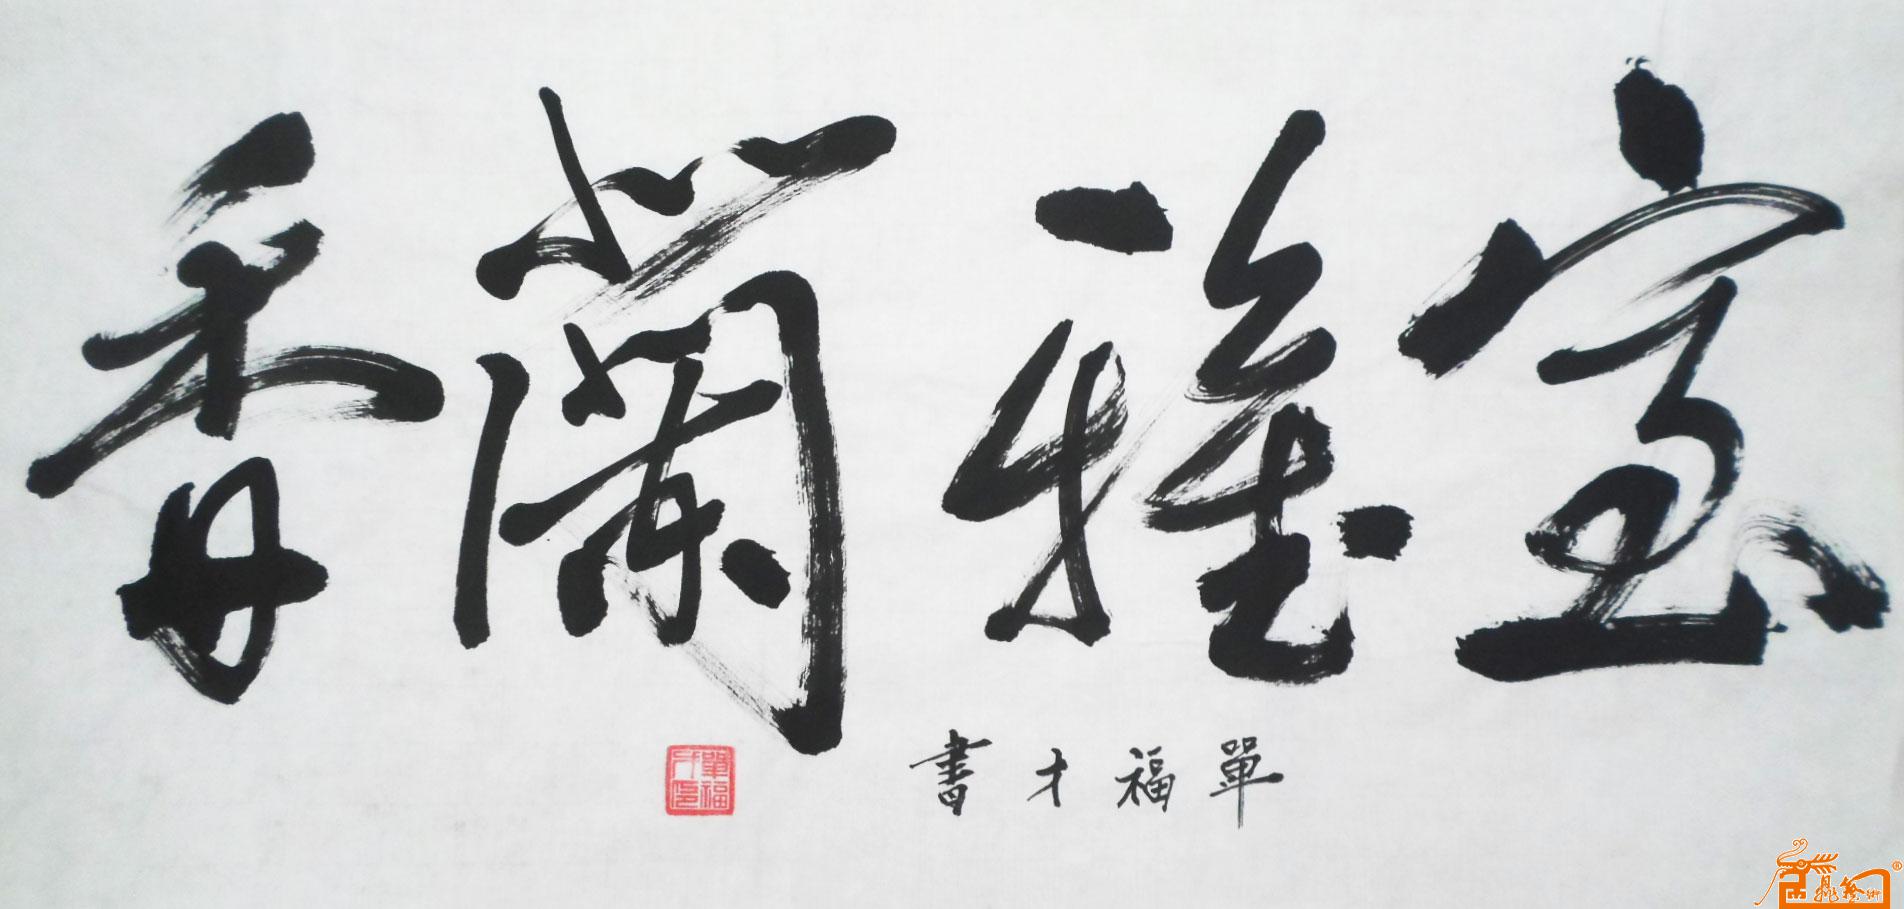 室雅蘭香
單福才書
單福才印